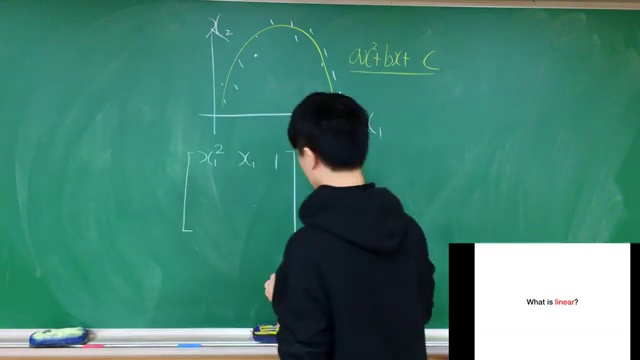 x₂
ax²+bx+ c
x₁
x₁² x₁ 1
What is linear?